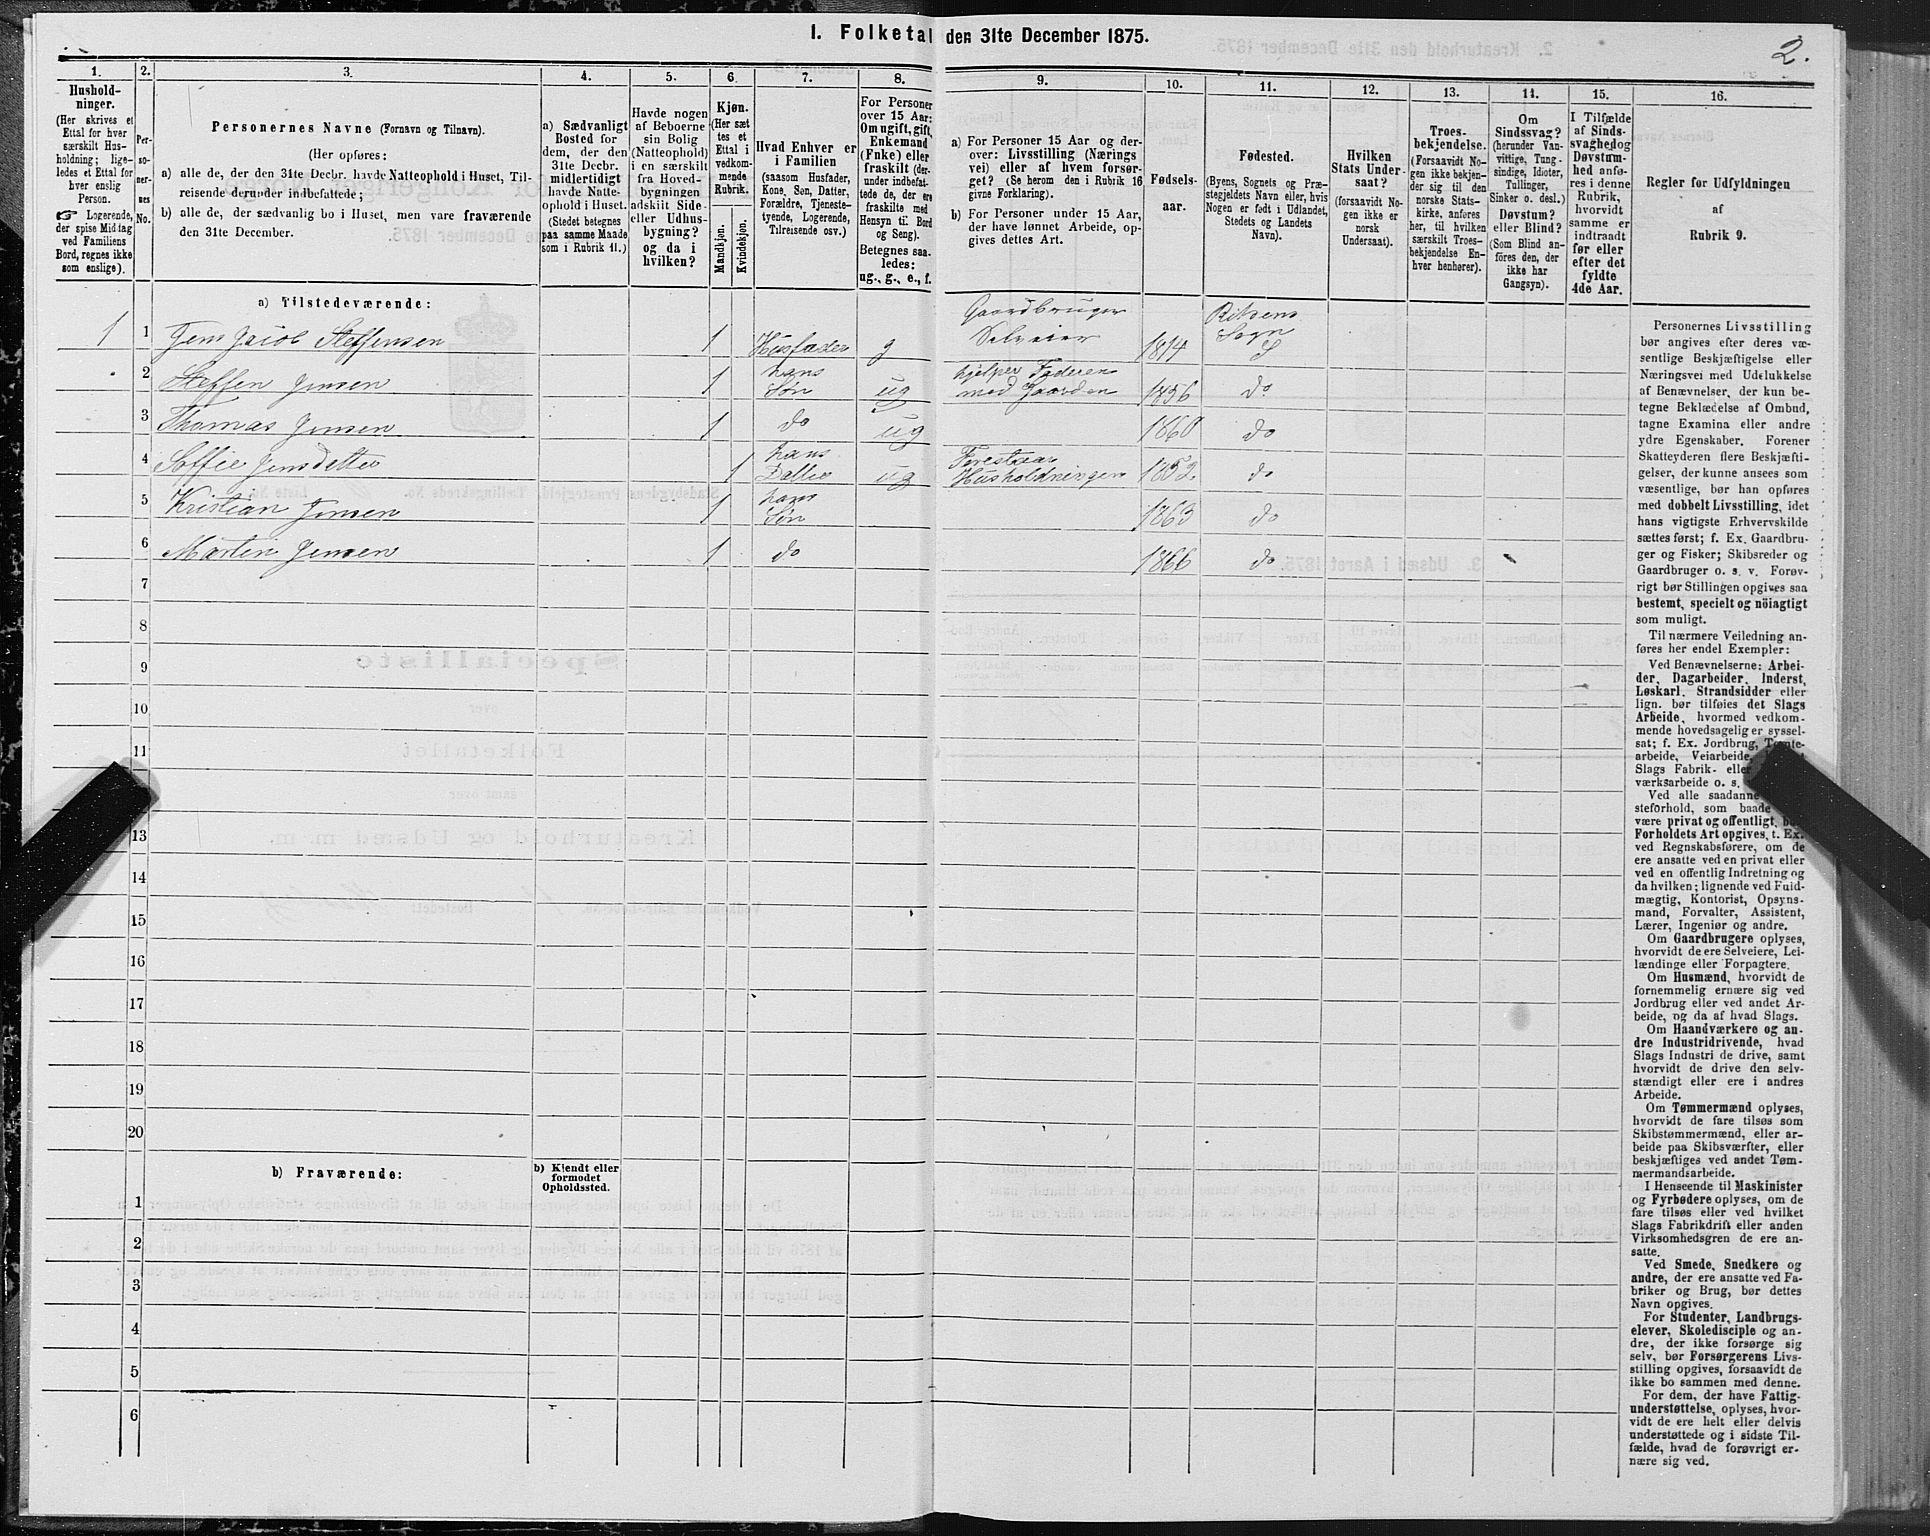 I. Folketal den 31te December 1875.
2.
1.
2.
3.
4.
5.
6.
7.
8.
9.
10.
11.
12.
13.
14.
15.
16.
Hushold-
ninger.
(Her skrives et
Ettal for hver
særskilt Hus-
holdning; lige-
ledes et Ettal for
hver enslig
Person.
☞ Logerende,
der spise Middag
ved Familiens
Bord, regnes ikke
som enslige).
Per-
so-
ner-
nes
No.
Personernes Navne (Fornavn og Tilnavn).
(Her opføres:
a) alle de, der den 31te Decbr. havde Natteophold i Huset, Til-
reisende derunder indbefattede;
b) alle de, der sædvanlig bo i Huset, men vare fraværende
den 31te December.
a) Sædvanligt
Bosted for
dem, der den
31te Decbr.
midlertidigt
havde Natte-
ophold i Huset.
(Stedet betegnes
paa samme Maade
som i Rubrik 11.)
Havde nogen
af Beboerne
sin Bolig
(Natteophold)
i en særskilt
fra Hoved-
bygningen
adskilt Side-
eller Udhus-
bygning?
og da i
hvilken?
Kjøn.
(Her sæt
tes et
Ettal i
vedkom-
mende
Rubrik.
Mandkjøn.
Kvindekjøn.
Hvad Enhver er
i Familien
(saasom Husfader,
Kone, Søn, Datter,
Forældre, Tjeneste-
tyende, Logerende,
Tilreisende osv.)
For Personer
over 15 Aar:
Om ugift, gift,
Enkemand
(Enke) eller
fraskilt (der-
under indbefat-
tede de, der ere
fraskilte med
Hensyn til Bord
og Seng).
Betegnes saa-
ledes:
ug., g., e., f.
a) For Personer 15 Aar og der-
over: Livsstilling (Nærings
vei) eller af hvem forsør-
get? (Se herom den i Rubrik 16
givne Forklaring).
b) For Personer under 15 Aar,
der have lønnet Arbeide, op-
gives dettes Art.
Fødsels-
aar.
Fødested.
(Byens, Sognets og Præ-
stegjeldets Navn eller, hvis
Nogen er født i Udlandet,
Stedets og Landets
Navn).
Hvilken
Stats Under-
saat?
(forsaavidt No-
gen ikke er
norsk
Undersaat).
Troes-
bekjendelse.
(Forsaavidt No-
gen ikke bekjen-
der sig til den
norske Stats-
kirke, anføres
her, til hvilken
særskilt Troes-
bekjendelse En-
hver henhører).
Om
Sindssvag?
(herunder Van-
vittige, Tung-
sindige, Idioter,
Tullinger,
Sinker o. desl.)
Døvstum?
eller Blind?
(Som Blind an-
føres den, der
ikke har
Gangsyn).
I Tilfælde
af Sinds-
svaghed og
Døvstum-
hed anfø-
res i denne
Rubrik,
hvorvidt
samme er
indtraadt
før eller
efter det
fyldte
4de Aar.
Regler før Udfyldningen
af
Rubrik 9.
a) Tilstedeværende:
1 1 Jens Jacob Steffensen 1 Husfader g Gaardbruger Selveier 1814 Sogn
2 Steffen Jensen 1 hans Søn ug hjelper Faderen med Gaarden 1856 do
3 Thomas Jensen 1 do ug 1860 do
4 Soffie Jensdatter 1 hans ug Forestaar Husholdningen 1852 do
5 Kristian Jensen 1 hans Søn 1863 do
6 Martin Jensen 1 do 1866 do
7
8
9
10
11
13
14
15
16
17
18
19
20
b) Fraværende:
b) Kjendt eller
formodet
Opholdssted.
1
2
3
4
5
6
Personernes Livsstilling
bør angives efter deres væ-
sentlige Beskjæftigelse eller
Næringsvei med Udelukkelse
af Benævnelser, der kun be-
tegne Beklædelse af Ombud,
tagne Examina eller andre
ydre Egenskaber. Forener
Skatteyderen flere Beskjæfti-
gelser, der kunne ansees som
væsentlige, bør han opføres
med dobbelt Livsstilling, idet
hans vigtigste Erhvervskilde
sættes først; f. Ex. Gaardbru-
ger og Fisker; Skibsreder og
Gaardbruger o. s. v. Forøv-
rigt bør Stillingen opgives saa
bestemt, specielt og nöiagtigt
som muligt.
Til nærmere Veiledning an-
føres her endel Exempler:
Ved Benævnelserne: Arbei-
der, Dagarbeider, Inderst,
Løskarl, Strandsidder eller
lign. bør tilføies det Slags
Arbeide, hvormed vedkom-
mende hovedsagelig er syssel-
sat; f. Ex. Jordbrug,
arbeide, Veiarbeide,
Slags Fabrik- eller
værksarbeide o. s.
Ved alle saadanne
steforhold, som baade
være privat og offentligt,
Forholdets Art opgives, t. Ex.
ved Regnskabsførere, om de
ere ansatte ved en privat eller
ved en offentlig Indretning og
da hvilken; lignende ved Fuld-
mægtig, Kontorist, Opsyns-
mand, Forvalter, Assistent,
Lærer, Ingeniør og andre.
Om Gaardbrugere oplyses,
hvorvidt de ere Selveiere, Lei-
lændinge eller Forpagtere.
Om Husmænd, hvorvidt de
fornemmelig ernære sig ved
Jordbrug eller ved andet Ar-
beide, og da af hvad Slags.
Om Haandværkere og an-
dre Industridrivende, hvad
Slags Industri de drive, samt
hvorvidt de drive den selv-
stændigt eller ere i andres
Arbeide.
Om Tømmermænd oplyses,
hvorvidt de fare tilsøs som
Skibstømmermænd, eller ar-
beide paa Skibsværfter, eller
beskjæftiges ved andet Tøm-
mermandsarbeide.
I Henseende til Maskinister
og Fyrbødere oplyses, om de
fare tilsøs eller ved hvilket
Slags Fabrikdrift eller anden
Virksomhedsgren de ere an-
satte.
Ved Smede, Snedkere og
andre, der ere ansatte ved Fa-
briker og Brug, bør dettes
Navn opgives.
For Studenter, Landbrugs-
elever, Skoledisciple og an-
dre, der ikke forsørge sig
selv, bør Forsørgerens Livs-
stilling opgives, forsaavidt de
ikke bo sammen med denne.
For dem, der have Fattig-
understøttelse, oplyses, hvor-
vidt de ere helt eller delvis
understøttede og i sidste Til-
fælde, hvad de forøvrigt er-
nære sig ved.